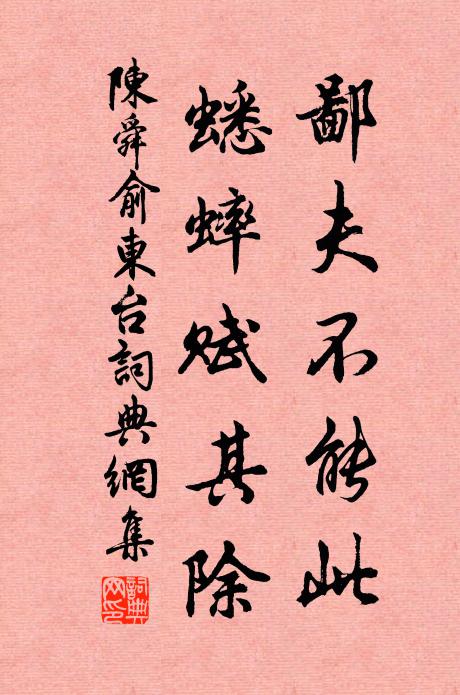 鄙夫不能此
蟋蟀賦其除
陳舜俞東台詞典網集
詞典網印